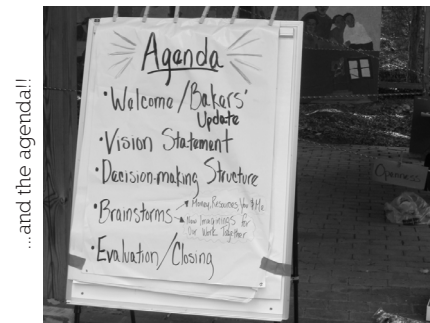 ...and the agenda!!
Agenda
• Welcome/Bakers'
Update
• Vision Statement
• Decision-making Structure
• Brainstorms
Money, Resources, You & Me
New Imaginings for
Our Work Together
• Evaluation/Closing
Openness